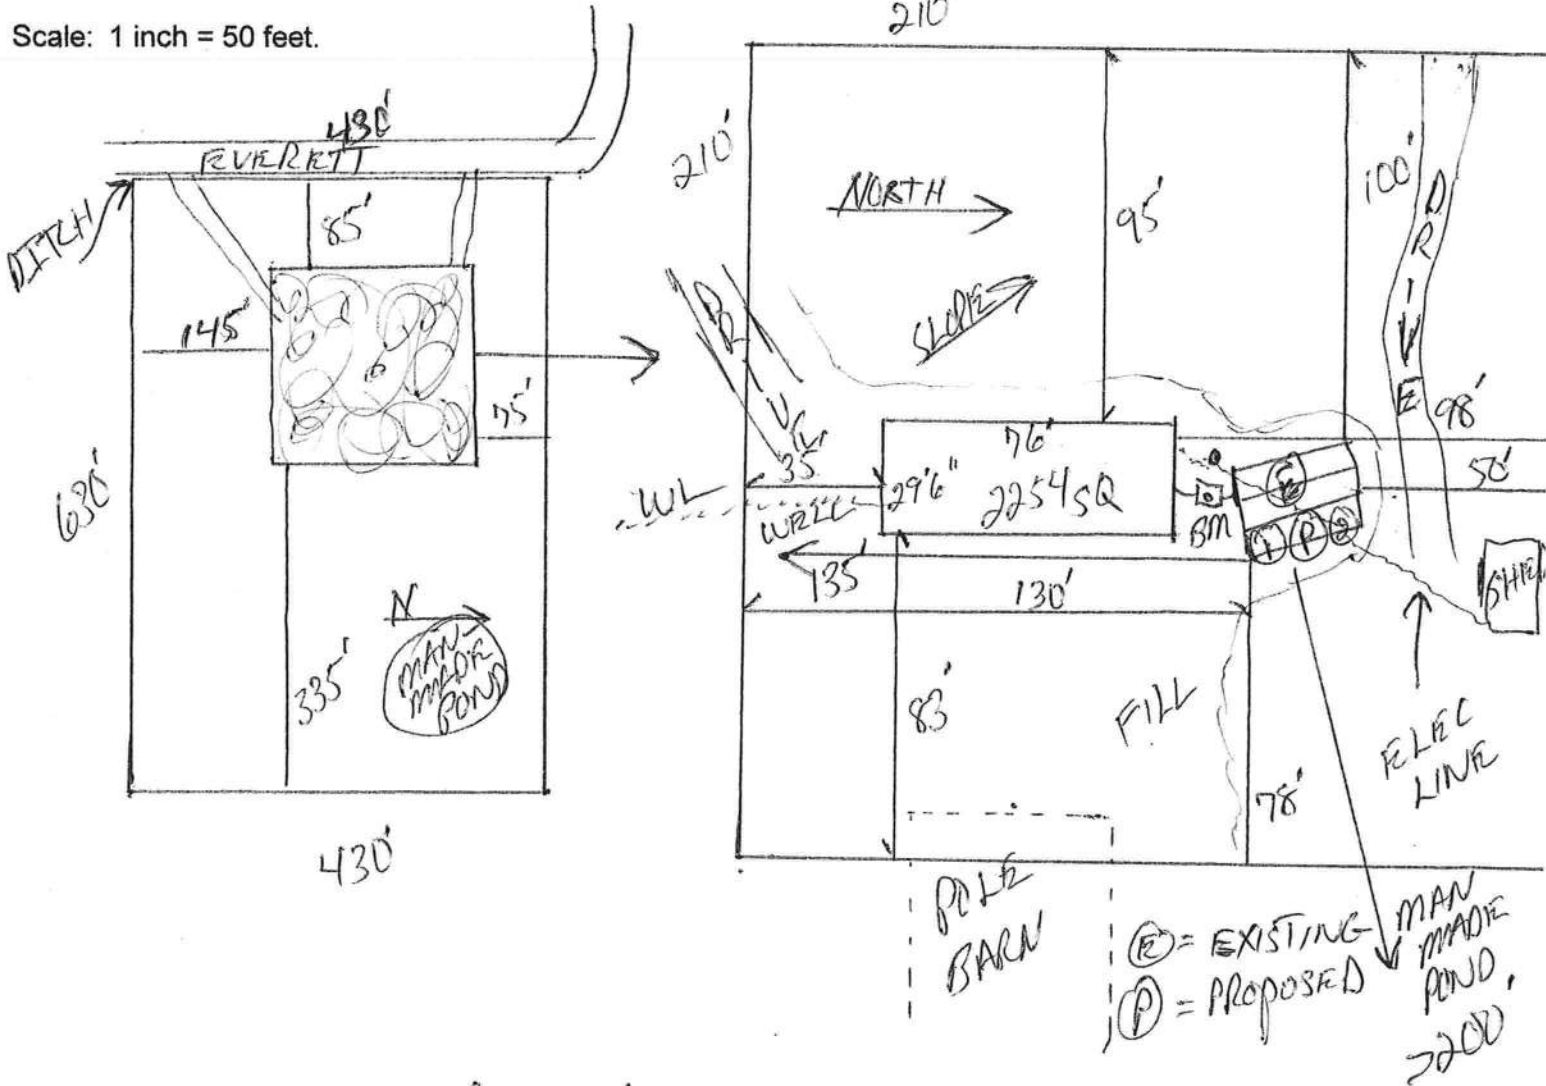 Scale: 1 inch = 50 feet.
430'
EVERETT
DITCH
85'
145'
75'
630'
N
MAN-
MADE
POND
335'
430'
210'
210'
NORTH
95'
100'
DRIVE
SLOPE
DRIVE
98'
35'
76'
29'6"
2254 SQ
50'
WL
WELL
BM
E
1
P
2
135'
130'
SHED
83'
FILL
78'
ELEC
LINE
POLE
BARN
E = EXISTING
P = PROPOSED
MAN
MADE
POND,
>200